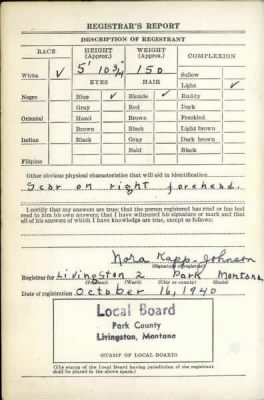 REGISTRAR'S REPORT
DESCRIPTION OF REGISTRANT
RACE
HEIGHT
(Approx.)
WEIGHT
(Approx.)
COMPLEXION
White ✓
5' 10 3/4"
150
Sallow
EYES
HAIR
Light ✓
Negro
Blue ✓
Blonde ✓
Ruddy
Gray
Red
Dark
Oriental
Hazel
Brown
Freckled
Brown
Black
Light brown
Indian
Black
Gray
Dark brown
Bald
Black
Filipino
Other obvious physical characteristics that will aid in identification
Scar on right forehead.
I certify that my answers are true; that the person registered has read or has had
read to him his own answers; that I have witnessed his signature or mark and that
all of his answers of which I have knowledge are true, except as follows:
Nora Kapp-Johnson
(Signature of registrar)
Registrar for Livingston 2 Park Montana
(Precinct) (Ward) (City or County) (State)
Date of registration October 16, 1940
Local Board
Park County
Livingston, Montana
(STAMP OF LOCAL BOARD)
(The stamp of the Local Board having jurisdiction of the registrant
shall be placed in the above space.)